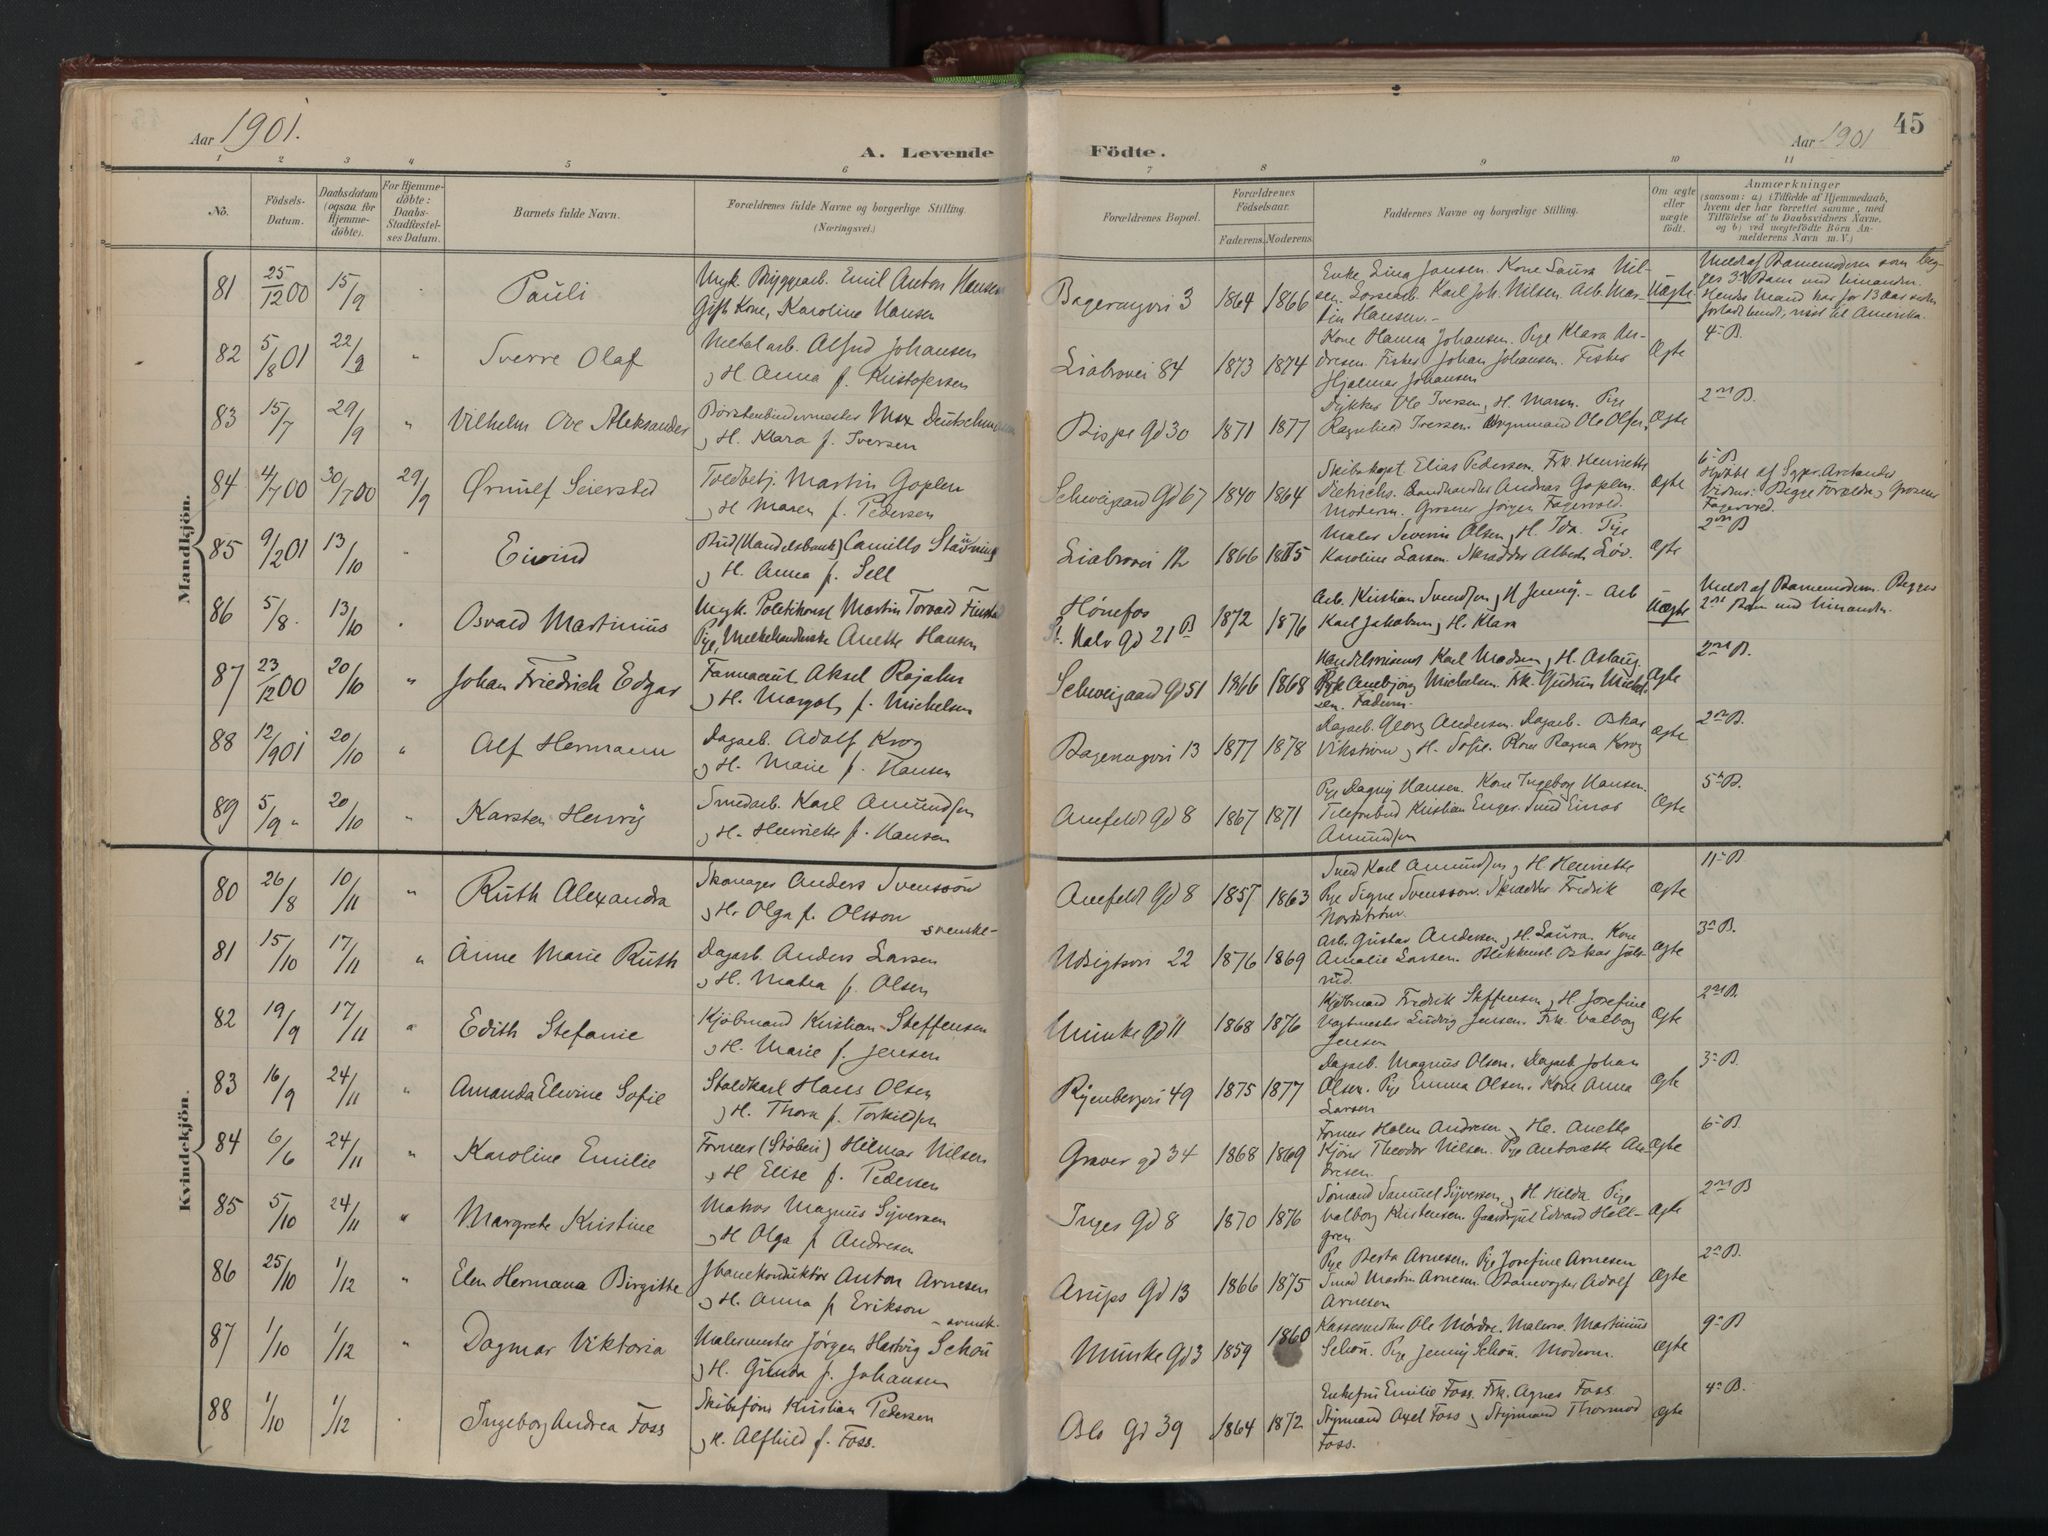 Aar 1901.
A. Levende Födte.
Aar 1901
45
1 2 3 4 5 6 7 8 9 10 11
No.
Födsels-
Datum.
Daabsdatum
(ogsaa for
Hjemme-
döbte).
For Hjemme-
döbte:
Daabs-
Stadfæstel-
ses Datum.
Barnets fulde Navn.
Forældrenes fulde Navne og borgerlige Stilling.
(Næringsvei.)
Forældrenes Bopæl.
Forældrenes
Födselsaar.
Faderens. Moderens.
Faddernes Navne og borgerlige Stilling.
Om ægte
eller
uægte
födt.
Anmærkninger
(saasom: a) i Tilfælde af Hjemmedaab,
hvem der har forrettet samme, med
Tilföielse af to Daabsvidners Navne,
og b) ved uægtefödte Börn An-
melderens Navn m. V.)
Mandkjön.
81 25/12 00 15/9 Pauli
Ungk. Bryggearb. Emil Anton Hansen
Gift Kone, Karoline Hansen
3 1864 1866
Enke Lina Jansen. Kone Laura Nil-
sen. Karl Joh. Nilsen. Arb. Mar-
tin Hansen.
Uægte
Meldt af Barnemoderen som beg-
ges 3die Barn med hinanden.
Hendes Mand har for 13 Aar siden
forladt hende, reist til Amerika.
82 5/8 01 22/9 " Sverre Olaf
Metalarb. Alfred Johansen
og H. Anna f. Kristofersen
Liabrovei 84 1873 1874
Kone Hanna Johansen. Pige Klara An-
dresen. Fisker Johan Johansen. Fisker
Hjalmar Johansen
Ægte 4- B.
83 15/7 29/9 " Vilhelm Ove Aleksander
Børstenbindermester Max Deutschmann
og H. Klara f. Iversen
Bispe Gd 30 1871 1877
Dykker Ole Iversen og H. Maren. Pige
Ragnhild Iversen. Ole Olsen.
Ægte 2net B.
84 4/7 00 30/7 00 29/9 Ørnulf Seiersted
Toldbetj. Martin Goplen
og H Maren f. Pedersen
Schweigaard Gd 67 1840 1864
Skibskapt. Elias Pedersen. Frk. Henriette
Dietrichs. Landhandler Andreas Goplen.
Moderen. Grosserer Jørgen Fagervold.
Ægte
6- B.
Hjdøbt af Sgpr. Arctander
Vidner: Begge Forældre og Grosserer
85 9/2 01 13/10 " Eivind
Bud (Handelsbank) Camillo
og H. Anna f. Sell
Liabrovei 12 1866 1875
Maler Severin Olsen og H. Ida. Pige
Karoline Larsen. Skrædder Albert Löv.
Ægte 2net B
86 5/8 13/10 " Osvald Martinius
Ungk. Politikonst Martin Torvald
Pige, Melkehandlerske Anette Hansen
Hönefos
St. Halv Gd 21 B 1872 1876
Arb. Kristian Svendsen og H Jenny. - Arb
Karl Jakobsen og H. Klara
Uægte
Meldt af Barnemoderen. Begges
2net Barn med hinanden.
87 23/12 00 20/10 " Johan Friedrich Edgar
Farmaceut Aksel Rojahn
og H. Margot f. Michelsen
Schweigaard Gd 51 1866 1868
Handelsreisend Karl Madsen og H. Aslaug.
Frk Michelsen. Frk. Gudrun Michel-
sen. Faderen.
Ægte 2net B.
88 12/1 901 20/10 " Alf Hermann
Dagarb. Adolf Krog
og H. Marie f. Hansen
13 1877 1878
Dagarb. Georg Andersen. Dagarb. Oskar
Vikström og H. Sofie. Kone Ragna Krog
Ægte 2net B.
89 5/9 " 20/10 " Karsten Henry
Smedarb. Karl Amundsen
og H. Henriette f. Hansen
Anefeldt Gd 8 1867 1871
Pige Dagny Hansen. Kone Ingeborg Hansen.
Telefonbud Kristian Enger. Smed Einar
Amundsen
Ægte 5te B.
Kvindekjön.
80 26/8 10/11 " Ruth Alexandra
Skomager Anders Svensson
og H. Olga f. Olsson svenske-
Anefeldt Gd 8 1857 1863
Smed Karl Amundsen og H. Henriette
Pige Signe Svensson. Skrædder Fredrik
Nordström.
Ægte 11- B
81 15/10 17/11 " Anne Marie Ruth
Dagarb. Anders Larsen
og H. Matea f. Olsen
Udsigtsvei 22 1876 1869
Arb. Gustav Andersen og H. Laura. Kone
Amalie Larsen. Blikkensl. Oskar Juls-
rud.
Ægte 3- B.
82 19/9 17/11 " Edith Stefanie
Kjöbmand Kristian Steffensen
og H. Marie f. Jensen
Munke Gd 11 1868 1876
Kjöbmand Fredrik Steffensen og H. Josefine
Vagtmester Ludvig Jensen. Frk. Valborg
Jensen
Ægte 2net B.
83 16/9 24/11 " Amanda Elvine Sofie
Staldkarl Hans Olsen
og H. Thora f. Torkildsen
Ryenbergvei 49 1875 1877
Dagarb. Magnus Olsen. Dagarb Johan
Olsen. Pige Emma Olsen. Kone Anna
Larsen
Ægte 3- B.
84 6/6 24/11 " Karoline Emilie
Former (Støberi) Hilmar Nilsen
og H Elise f. Pedersen
Graver gd 34 1868 1869
Former Halen Andresen og H. Anette
Kjører Theodor Nilsen. Pige Antonette An-
dresen.
Ægte 6- B.
85 5/10 24/11 " Margrete Kristine
Matros Magnus Syversen
og H Olga f Andresen
Inges Gd 8 1870 1876
Sömand Samuel Syversen og H. Hilda. Pige
Valborg Kristensen. Gaardsgut Edvard Holl-
gren.
Ægte 2net B
86 25/10 1/12 " Elen Hermana Birgitte
Jbanekonduktör Anton Arnesen
og H. Anna f Erikson - svensk.
Arups Gd 13 1866 1875
Pige Berta Arnesen. Pige Josefine Arnesen
Smed Martin Arnesen. Banevogter Adolf
Arnesen
Ægte 2- B.
87 1/10 1/12 " Dagmar Viktoria
Malermester Jörgen Hartvig Schou
og H. Gunda f. Johansen
Munke Gd 3 1859 1860
Ole Mördre. Malersv. Martinius
Schou. Pige Jenny Schou. Moderen.
Ægte 9- B
88 1/10 1/12 " Ingeborg Andrea Foss
Skibsförer Kristian Pedersen
og H. Alfhild f. Foss.
Oslo Gd 39 1864 1872
Enkefru Emilie Foss. Frk. Agnes Foss
Styrmand Axel Foss og Styrmand Thormod
Foss.
Ægte 4- B.